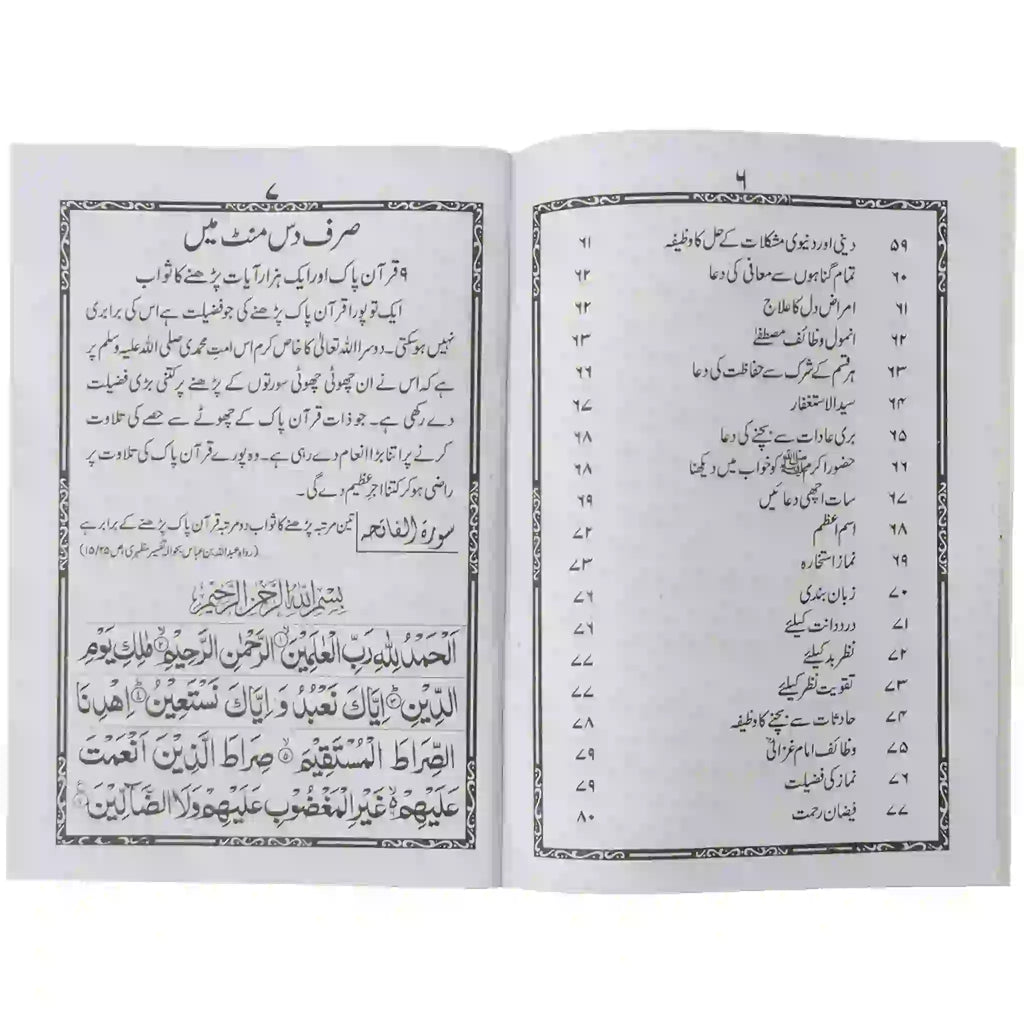 ۶
۵۹ دینی اور دنیوی مشکلات کے حل کا وظیفہ ۶۱
۶۰ تمام گناہوں سے معافی کی دعا ۶۲
۶۱ امراض دل کا علاج ۶۲
۶۲ انمول وظائف مصطفےٰ ۶۳
۶۳ ہر قسم کے شرک سے حفاظت کی دعا ۶۶
۶۴ سید الاستغفار ۶۷
۶۵ بری عادات سے بچنے کی دعا ۶۸
۶۶ حضور اکرم ﷺ کو خواب میں دیکھنا ۶۸
۶۷ سات اچھی دعائیں ۶۹
۶۸ اسم اعظم ۷۲
۶۹ نماز استخارہ ۷۳
۷۰ زبان بندی ۷۶
۷۱ درد دانت کیلئے ۷۶
۷۲ نظر بد کیلئے ۷۷
۷۳ تقویت نظر کیلئے ۷۷
۷۴ حادثات سے بچنے کا وظیفہ ۷۸
۷۵ وظائف امام غزالیؒ ۷۹
۷۶ نماز کی فضیلت ۷۹
۷۷ فیضان رحمت ۸۰
۷
صرف دس منٹ میں
۹ قرآن پاک اور ایک ہزار آیات پڑھنے کا ثواب
ایک تو پورا قرآن پاک پڑھنے کی جو فضیلت ہے اس کی برابری
نہیں ہو سکتی۔ دوسرا اللہ تعالیٰ کا خاص کرم اس امتِ محمدی صلی اللہ علیہ وسلم پر
ہے کہ اس نے ان چھوٹی چھوٹی سورتوں کے پڑھنے پر کتنی بڑی فضیلت
دے رکھی ہے۔ جو ذات قرآن پاک کے چھوٹے سے حصے کی تلاوت
کرنے پر اتنا بڑا انعام دے رہی ہے۔ وہ پورے قرآن پاک کی تلاوت پر
راضی ہو کر کتنا اجرِ عظیم دے گی۔
سورۃ الفاتحہ تین مرتبہ پڑھنے کا ثواب دو مرتبہ قرآن پاک پڑھنے کے برابر ہے
(رواہ عبداللہ بن عباس بحوالہ تفسیر مظہری ص ۱۵/۲۵)
بِسْمِ اللّٰهِ الرَّحْمٰنِ الرَّحِيْمِ
اَلْحَمْدُ لِلّٰهِ رَبِّ الْعٰلَمِيْنَ ۙ۱ الرَّحْمٰنِ الرَّحِيْمِ ۙ۲ مٰلِكِ يَوْمِ
الدِّيْنِ ؕ۳ اِيَّاكَ نَعْبُدُ وَ اِيَّاكَ نَسْتَعِيْنُ ؕ۴ اِهْدِنَا
الصِّرَاطَ الْمُسْتَقِيْمَ ۙ۵ صِرَاطَ الَّذِيْنَ اَنْعَمْتَ
عَلَيْهِمْ ۙ۶ غَيْرِ الْمَغْضُوْبِ عَلَيْهِمْ وَلَا الضَّآلِّيْنَ